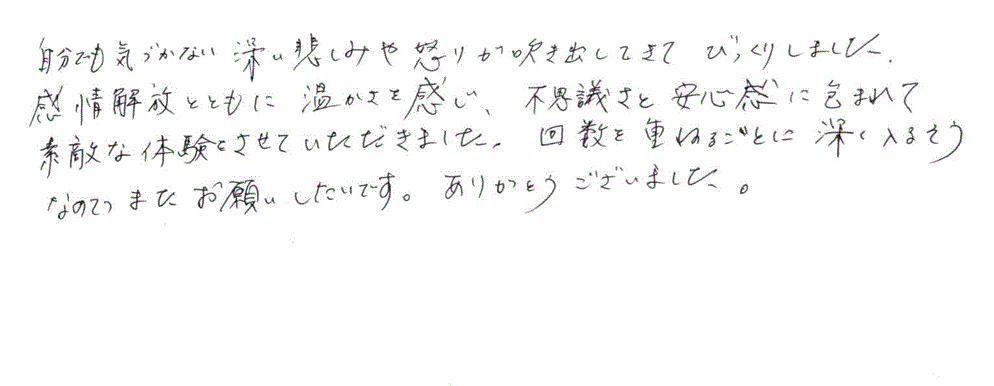 自分でも気づかない深い悲しみや怒りが吹き出してきてびっくりしました。
感情解放とともに温かさを感じ、不思議さと安心感に包まれて
素敵な体験をさせていただきました。回数を重ねるごとに深く入るそう
なのでまたお願いしたいです。ありがとうございました。